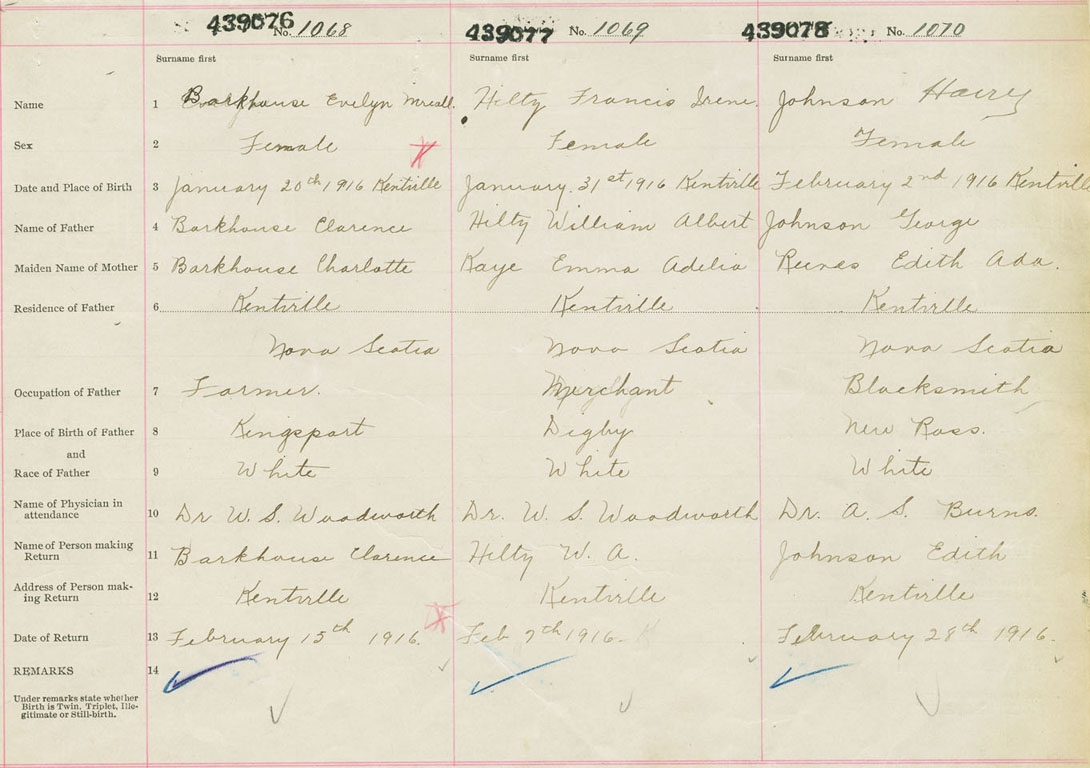 439076 No. 1068 439077 No. 1069 439078 No. 1070
Surname first Surname first Surname first
Name 1 Barkhouse Evelyn Hilty Francis Irene. Johnson Harry
Sex 2 Female Female Female
Date and Place of Birth 3 January 20th 1916 Kentville January. 31st 1916 Kentville February 2nd 1916 Kentville
Name of Father 4 Barkhouse Clarence Hilty William Albert Johnson George
Maiden Name of Mother 5 Barkhouse Charlotte Kaye Emma Adelia Reeves Edith Ada.
Residence of Father 6 Kentville Kentville Kentville
Nova Scotia Nova Scotia Nova Scotia
Occupation of Father 7 Farmer. Merchant Blacksmith
Place of Birth of Father 8 Kingsport Digby New Ross.
and
Race of Father 9 White White White
Name of Physician in
attendance 10 Dr W. S. Woodworth Dr. W. S. Woodworth Dr. A. S. Burns.
Name of Person making
Return 11 Barkhouse Clarence Hilty W. A. Johnson Edith
Address of Person mak-
ing Return 12 Kentville Kentville Kentville
Date of Return 13 February 15th 1916. Feb 7th 1916. February 28th 1916.
REMARKS 14
Under remarks state whether
Birth is Twin, Triplet, Ille-
gitimate or Still-birth.